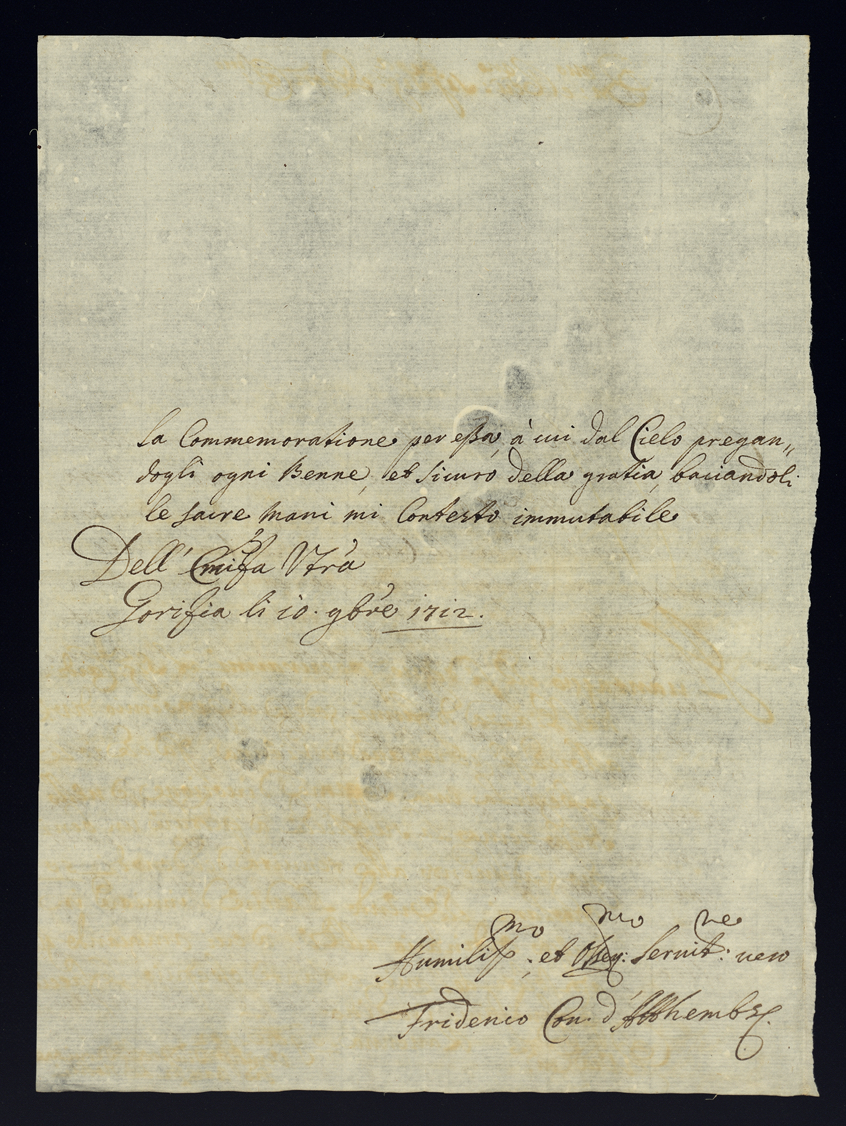 la Commemoratione per essa, à cui dal Cielo pregan„
dogli ogni Benne, et sicuro della gratia, baciandoli
le sacre Mani mi Contesto immutabile
Dell' Emi͠ssa Vtrà
Gorisia li 10. 9bre 1712.
Humiliss:mo et Obseq:mo Seruit:re uero
Friderico Con: d'Atthembs.